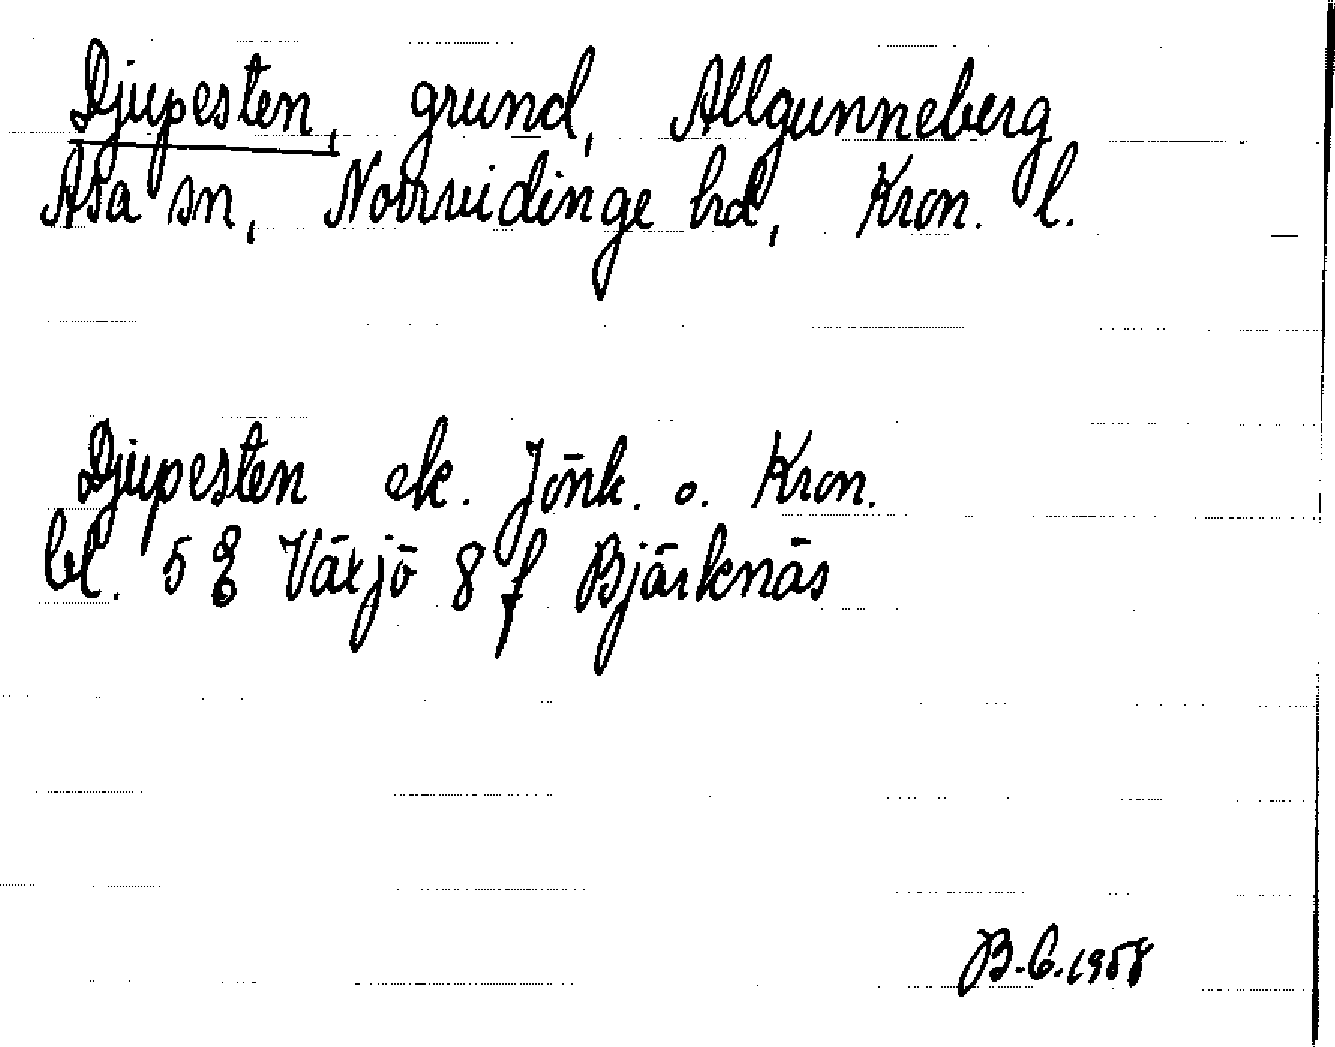 Djupesten, grund, Allgunneberg
Asa sn, Norrvidinge hd, Kron. l.
Djupesten ek. Jönk. o. Kron.
bl. 5 E Växjö 8 f Bjärknäs
B.C.1958